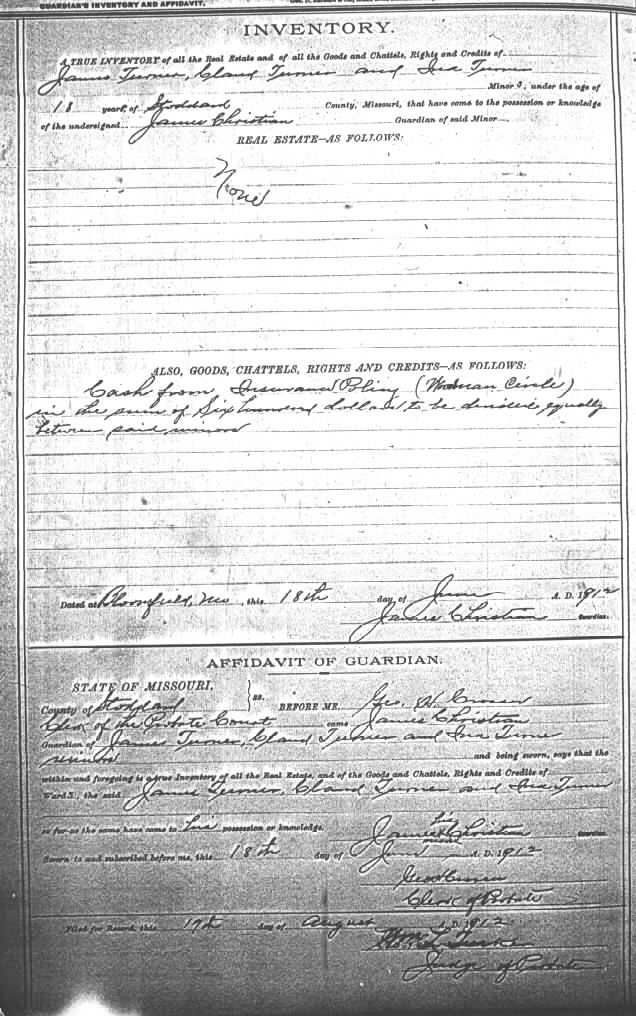 GUARDIAN'S INVENTORY AND AFFIDAVIT.
INVENTORY.
A TRUE INVENTORY of all the Real Estate and of all the Goods and Chattels, Rights and Credits of
James Turner, Claud Turner and Ina Turner
Minors, under the age of
18 years, of Stoddard County, Missouri, that have come to the possession or knowledge
of the undersigned James Christian Guardian of said Minor
REAL ESTATE—AS FOLLOWS:
None
ALSO, GOODS, CHATTELS, RIGHTS AND CREDITS—AS FOLLOWS:
Cash from Insurance Policy (Woodman Circle)
in the sum of Six hundred dollars to be divided equally
between said minors
Dated at Bloomfield, Mo, this 18th day of June A. D. 1912
James Christian Guardian.
AFFIDAVIT OF GUARDIAN.
STATE OF MISSOURI,
County of Stoddard ss. BEFORE ME, Geo. H.
Clerk of the Probate Court came James Christian
Guardian of James Turner, Claud Turner and Ina Turner
minors and being sworn, says that the
within and foregoing is a true Inventory of all the Real Estate, and of the Goods and Chattels, Rights and Credits of
Wards, the said James Turner, Claud Turner and Ina Turner
so far as the same have come to his possession or knowledge.
his
James X Christian Guardian.
mark
Sworn to and subscribed before me, this 18th day of June A. D. 1912
Clerk of Probate
Filed for Record, this 17th day of August A. D. 1912
Judge of Probate